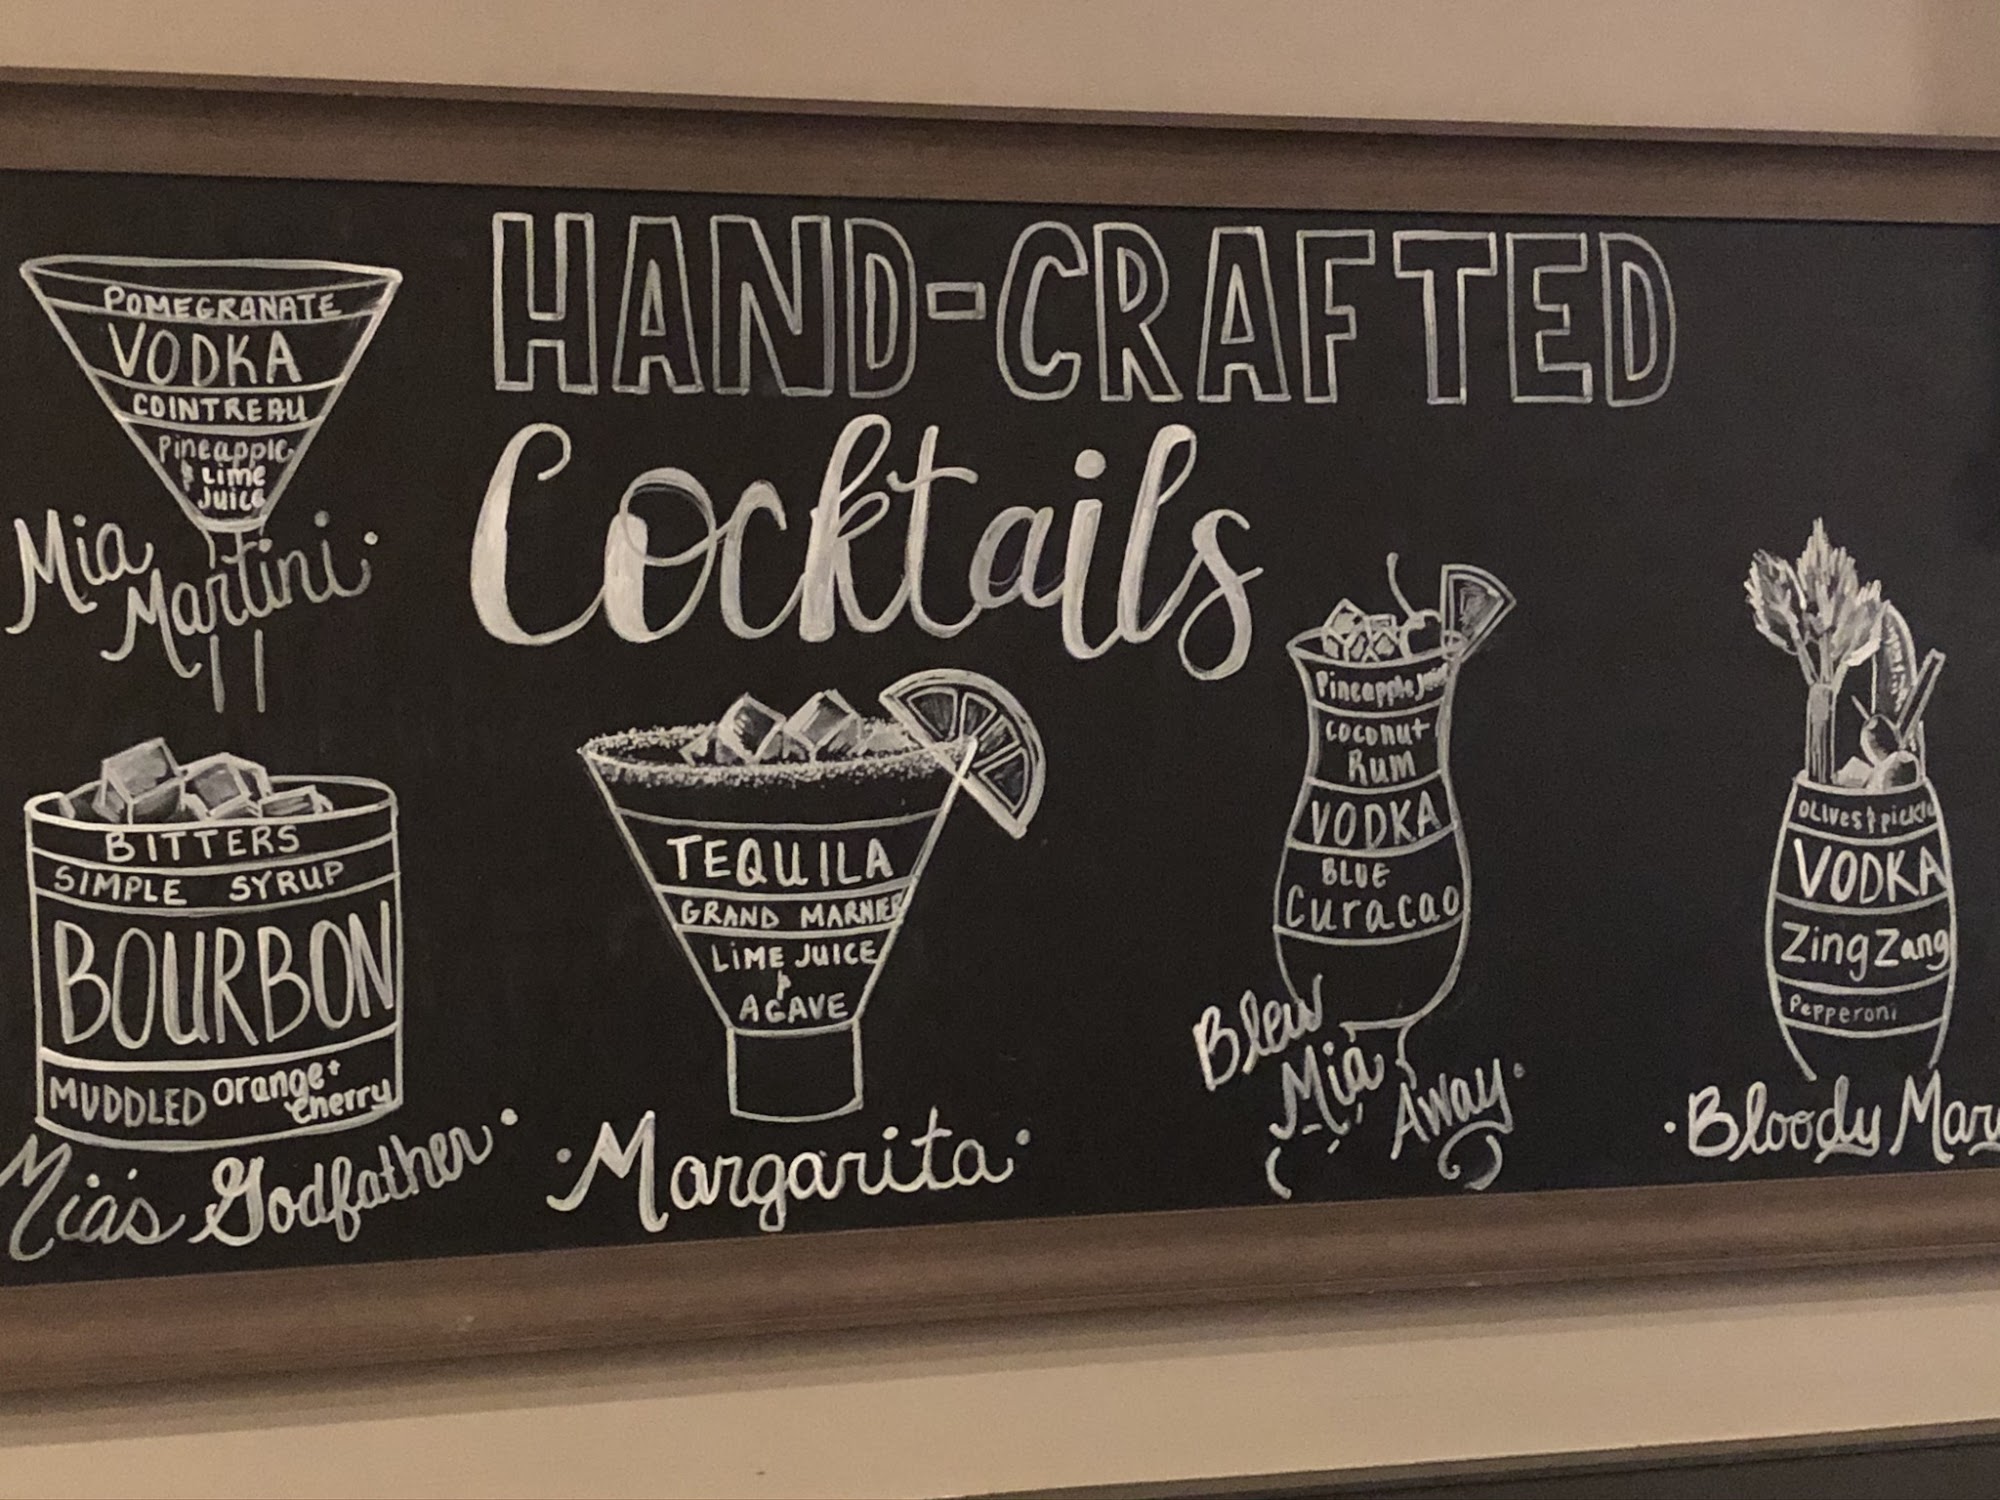 HAND-CRAFTED
Cocktails
POMEGRANATE
VODKA
COINTREAU
Pineapple
& Lime
Juice
Mia
Martini.
BITTERS
SIMPLE SYRUP
BOURBON
MUDDLED orange+
cherry
Mia's Godfather.
TEQUILA
GRAND MARNIER
LiME JUICE
&
AGAVE
.Margarita.
Pineapple Juice
coconut
Rum
VODKA
BLUE
Curacao
Blew
Mia
Away.
OLives & pickle
VODKA
Zing Zang
Pepperoni
.Bloody Mary